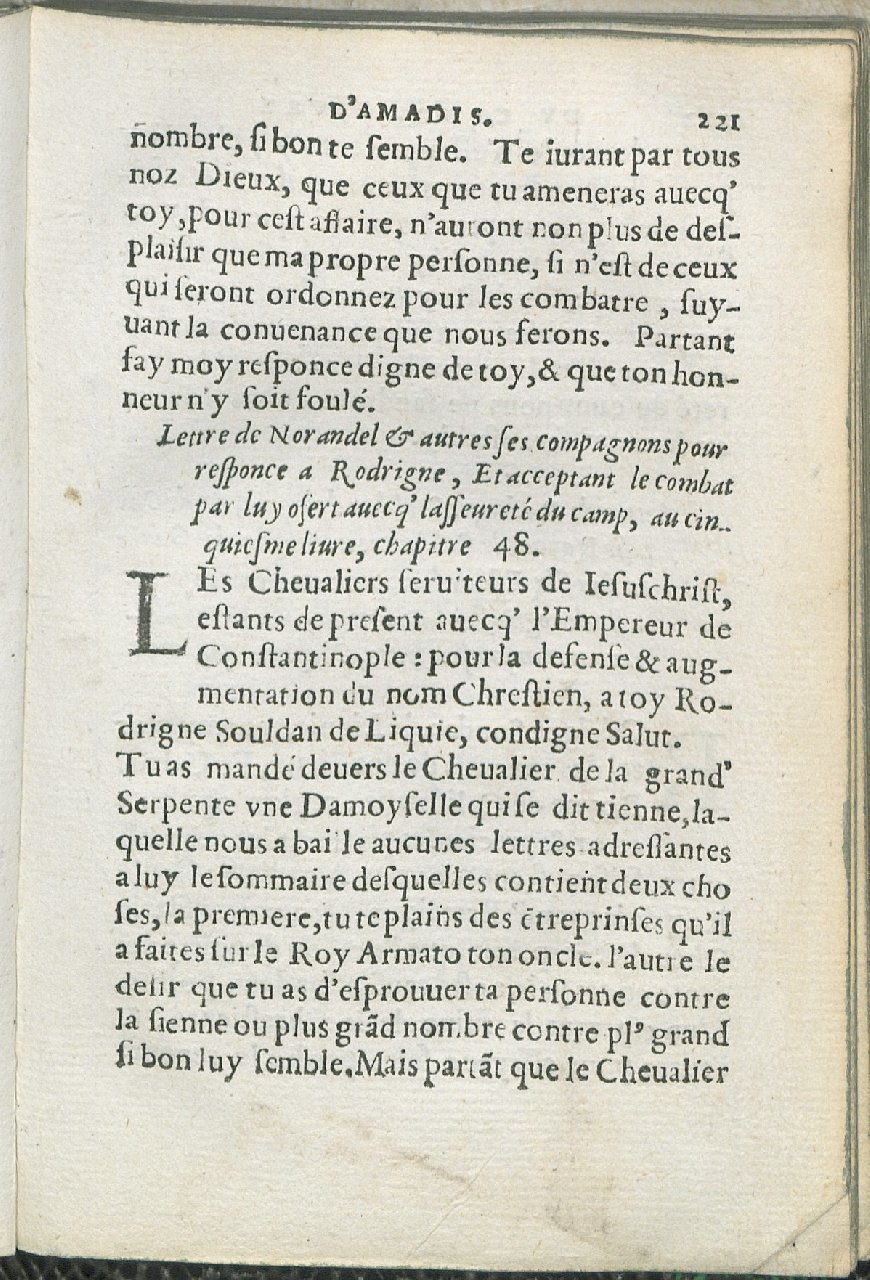 D'AMADIS. 221
nombre, si bon te semble. Te iurant par tous
noz Dieux, que ceux que tu ameneras auecq'
toy, pour cest affaire, n'auront non plus de deſ-
plaiſir que ma propre perſonne, ſi n'eſt de ceux
qui ſeront ordonnez pour les combatre, ſuy-
uant la conuenance que nous ferons. Partant
fay moy reſponce digne de toy, & que ton hon-
neur n'y ſoit foulé.
Lettre de Norandel & autres ſes compagnons pour
reſponce a Rodrigne, Et acceptant le combat
par luy ofert auecq' laſſeureté du camp, au cin-
quieſme liure, chapitre 48.
LEs Cheualiers ſeruiteurs de Ieſuſchriſt,
eſtants de preſent auecq' l'Empereur de
Conſtantinople : pour la defenſe & aug-
mentation du nom Chreſtien, a toy Ro-
drigne Souldan de Liquie, condigne Salut.
Tu as mandé deuers le Cheualier de la grand'
Serpente vne Damoyſelle qui ſe dit tienne, la-
quelle nous a baillé aucunes lettres adreſſantes
a luy le ſommaire deſquelles contient deux cho
ſes, la premiere, tu te plains des ētreprinſes qu'il
a faites ſur le Roy Armato ton oncle. l'autre le
deſir que tu as d'eſprouuer ta perſonne contre
la ſienne ou plus grãd nombre contre pl⁹ grand
ſi bon luy ſemble. Mais partãt que le Cheualier